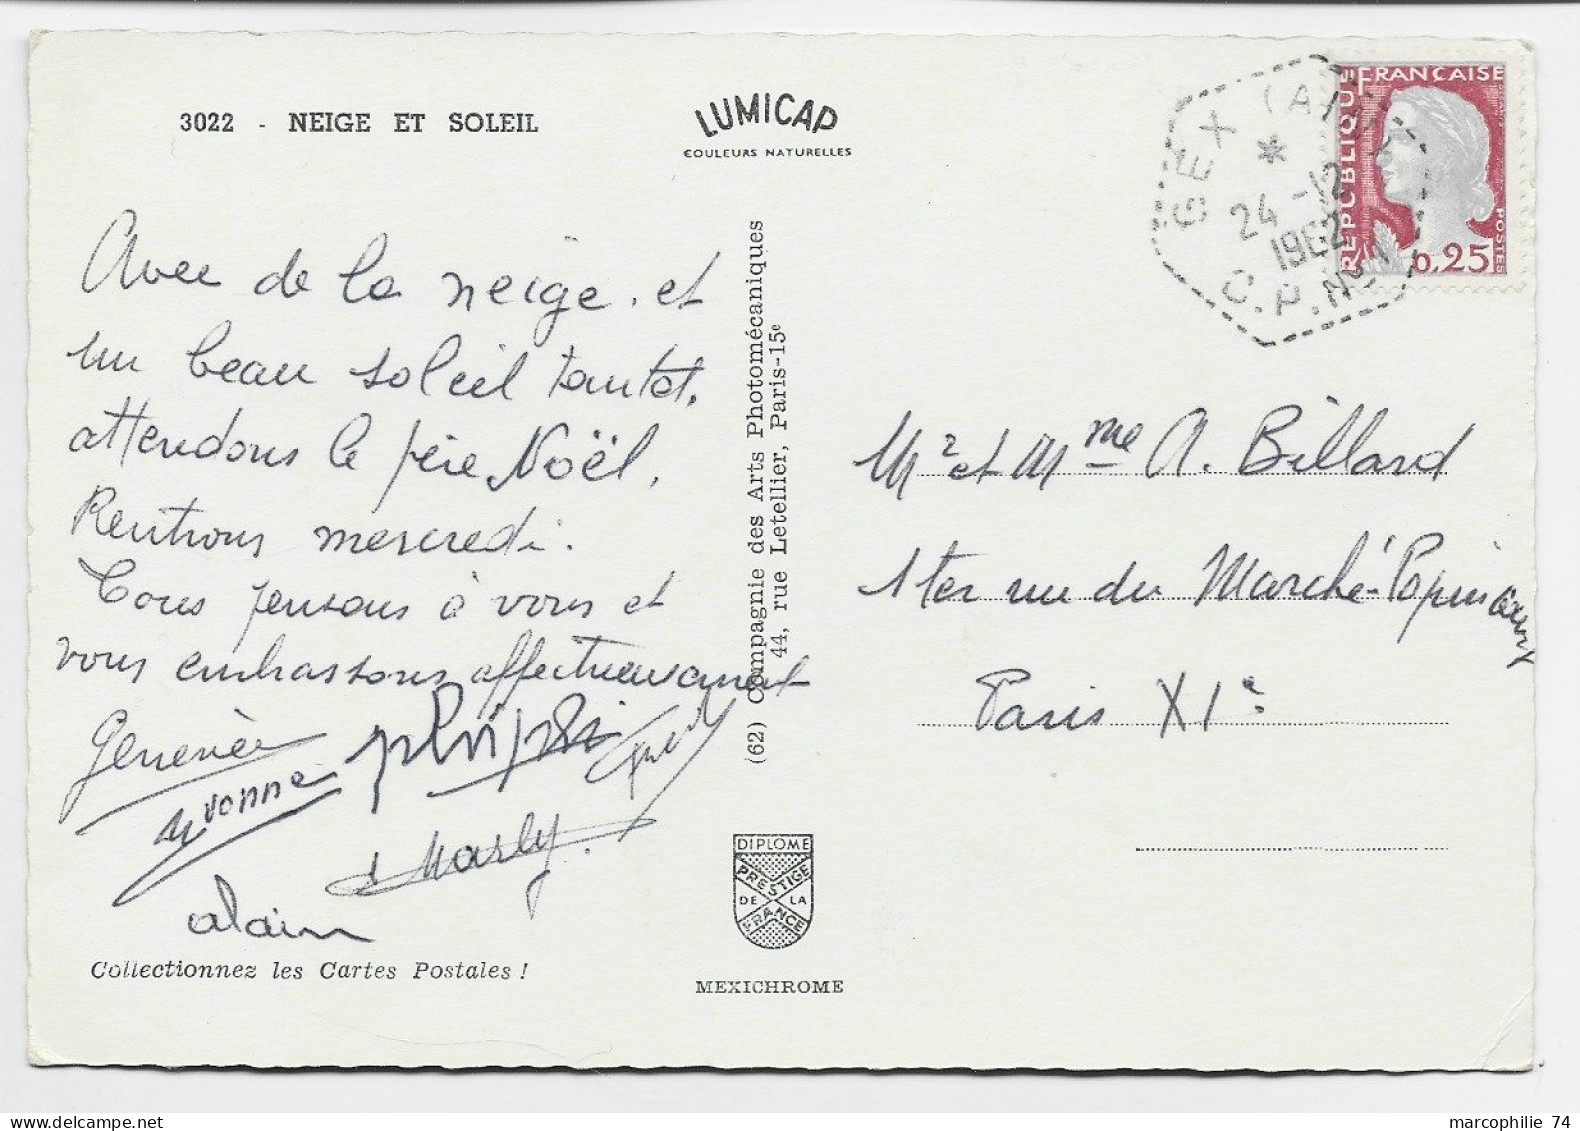 3022 - NEIGE ET SOLEIL
LUMICAP
COULEURS NATURELLES
Avec de la neige et
un beau soleil tantot,
attendons le père Noël,
Rentrons mercredi.
Tous pensons à vous et
vous embrassons affectueusement
Geneviève
Yvonne
Marly
alain
Collectionnez les Cartes Postales !
(62) Compagnie des Arts Photomécaniques
44, rue Letellier, Paris-15e
DIPLOME
PRESTIGE
DE LA
FRANCE
MEXICHROME
GEX (A
*
24 -12
1962
C.P.N°1
REPUBLIQUE
FRANCAISE
POSTES
0,25
Mr et Mme A. Billard
1 ter rue du Marché-Popincourt
Paris XIe
marcophilie 74